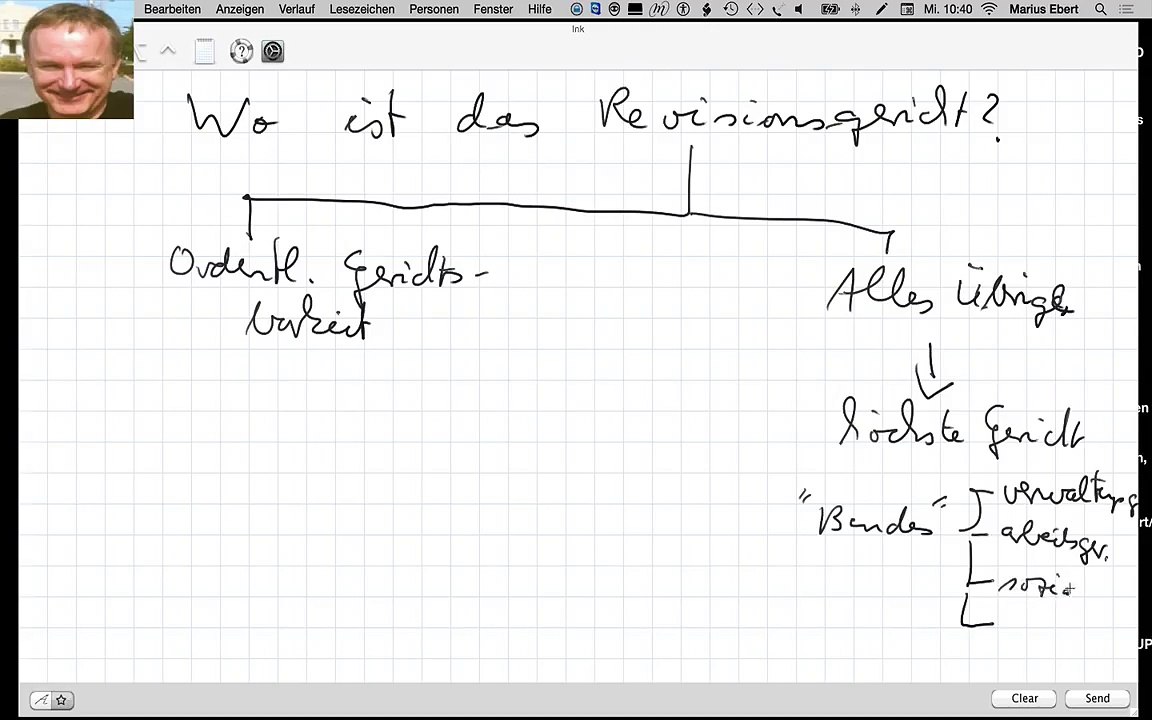 Bearbeiten Anzeigen Verlauf Lesezeichen Personen Fenster Hilfe Mi. 10:40 Marius Ebert
Ink
Wo ist das Revisionsgericht?
Ordentl. Gerichts-
barkeit
Alles Übrige
höchste Gericht
"Bundes"
verwaltungsg
arbeitsger.
sozia
Clear Send